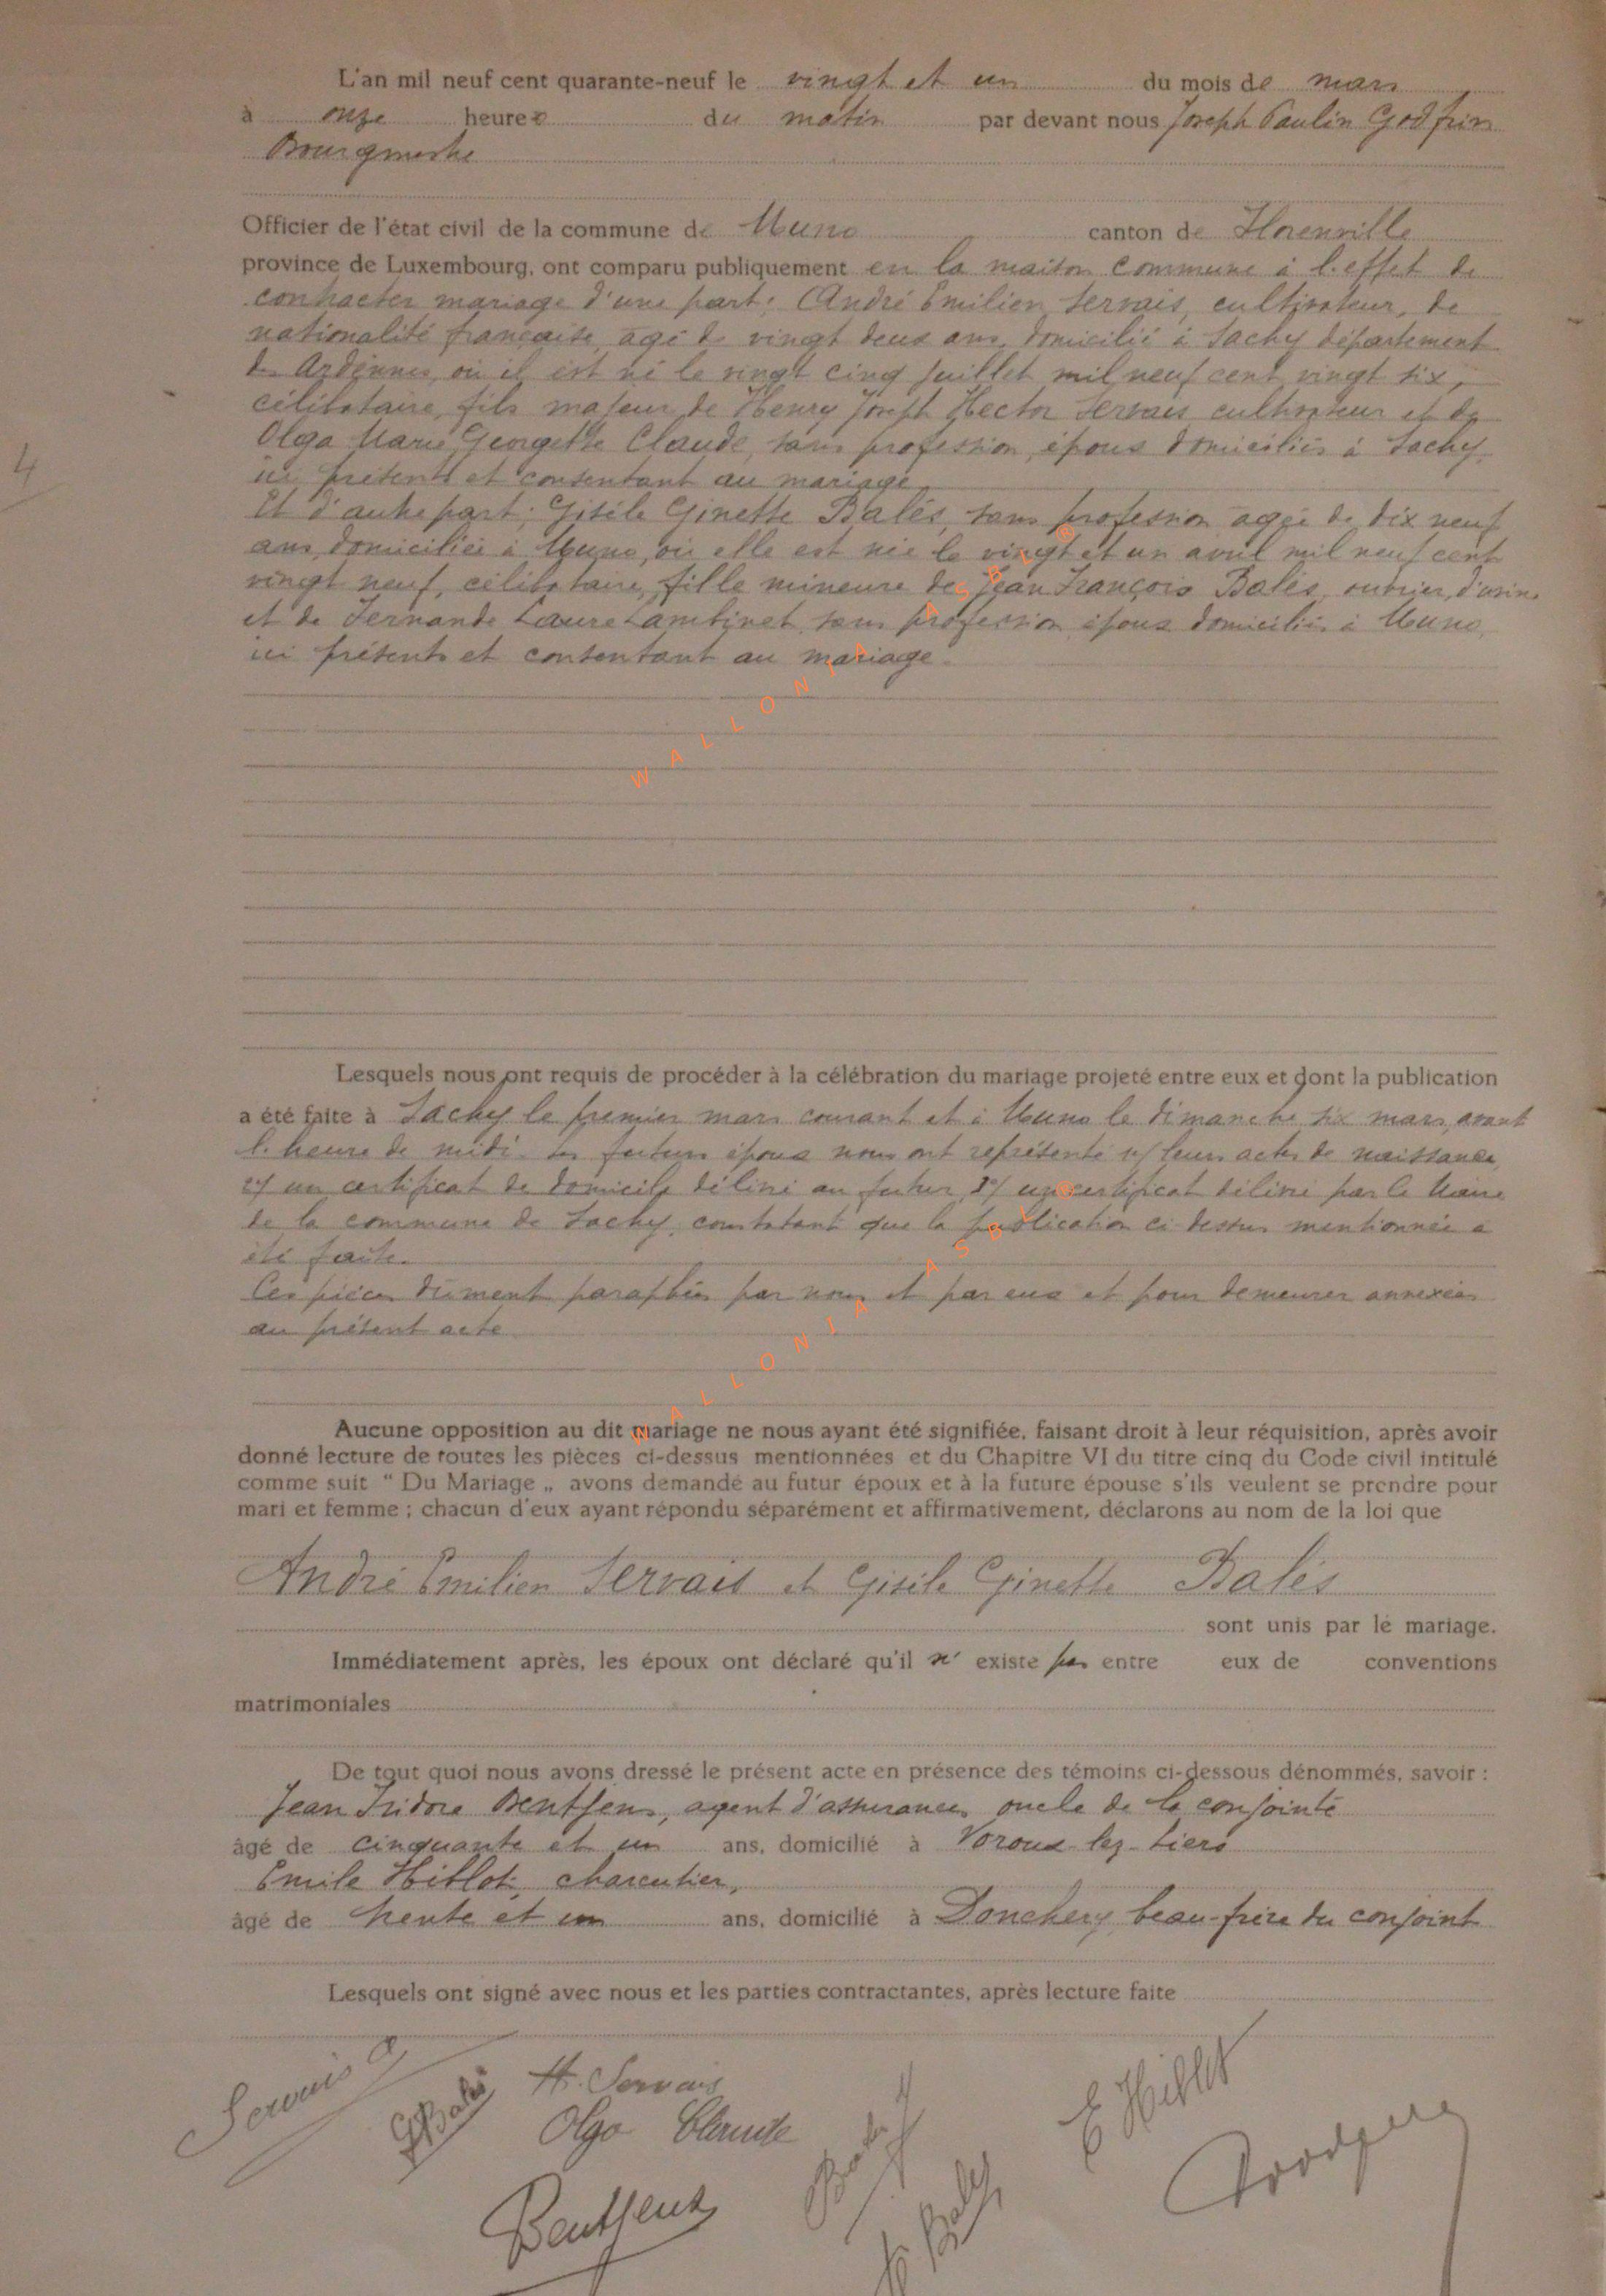 L'an mil neuf cent quarante-neuf le vingt et un du mois de mars
à onze heures du matin par devant nous Joseph Paulin Godfrin
Bourgmestre
Officier de l'état civil de la commune de Muno canton de Florenville
province de Luxembourg, ont comparu publiquement en la maison commune à l'effet de
contracter mariage d'une part; André Emilien Servais, cultivateur, de
nationalité française, agé de vingt deux ans, domicilié à Sachy département
des Ardennes, où il est né le vingt cinq juillet mil neuf cent vingt six,
4
célibataire, fils majeur de Henry Joseph Hector Servais cultivateur et de
Olga Marie Georgette Claude, sans profession, époux domiciliés à Sachy
ici présents et consentant au mariage,
Et d'autre part; Gisèle Ginette Balés, sans profession agée de dix neuf
ans, domiciliée à Muno, où elle est née le vingt et un avril mil neuf cent
vingt neuf, célibataire, fille mineure de Jean François Balés, ouvrier d'usine
et de Fernande Laure Lambinet, sans profession, époux domiciliés à Muno,
ici présents et consentant au mariage.
WALLONIA ASBL ®
Lesquels nous ont requis de procéder à la célébration du mariage projeté entre eux et dont la publication
a été faite à Sachy le premier mars courant et à Muno le dimanche six mars, avant
l'heure de midi. Les futurs époux nous ont représenté 1/ leurs actes de naissance,
2/ un certificat de domicile délivré au futur, 3/ un certificat délivré par le Maire
de la commune de Sachy, constatant que la publication ci-dessus mentionnée a
été faite.
Ces pièces dûment paraphées par nous et par eux et pour demeurer annexées
au présent acte
WALLONIA ASBL ®
Aucune opposition au dit mariage ne nous ayant été signifiée, faisant droit à leur réquisition, après avoir
donné lecture de toutes les pièces ci-dessus mentionnées et du Chapitre VI du titre cinq du Code civil intitulé
comme suit “ Du Mariage „ avons demandé au futur époux et à la future épouse s'ils veulent se prendre pour
mari et femme ; chacun d'eux ayant répondu séparément et affirmativement, déclarons au nom de la loi que
André Emilien Servais et Gisèle Ginette Balés
sont unis par le mariage.
Immédiatement après, les époux ont déclaré qu'il n' existe pas entre eux de conventions
matrimoniales
De tout quoi nous avons dressé le présent acte en présence des témoins ci-dessous dénommés, savoir :
Jean Isidore Bentjens, agent d'assurances, oncle de la conjointe
âgé de cinquante et un ans, domicilié à Voroux-lez-Liers
Emile Hiblot, charcutier,
âgé de trente et un ans, domicilié à Donchery, beau-frère du conjoint
Lesquels ont signé avec nous et les parties contractantes, après lecture faite
Servais
G Balés
H. Servais
Olga Claude
E Hiblot
Bentjens